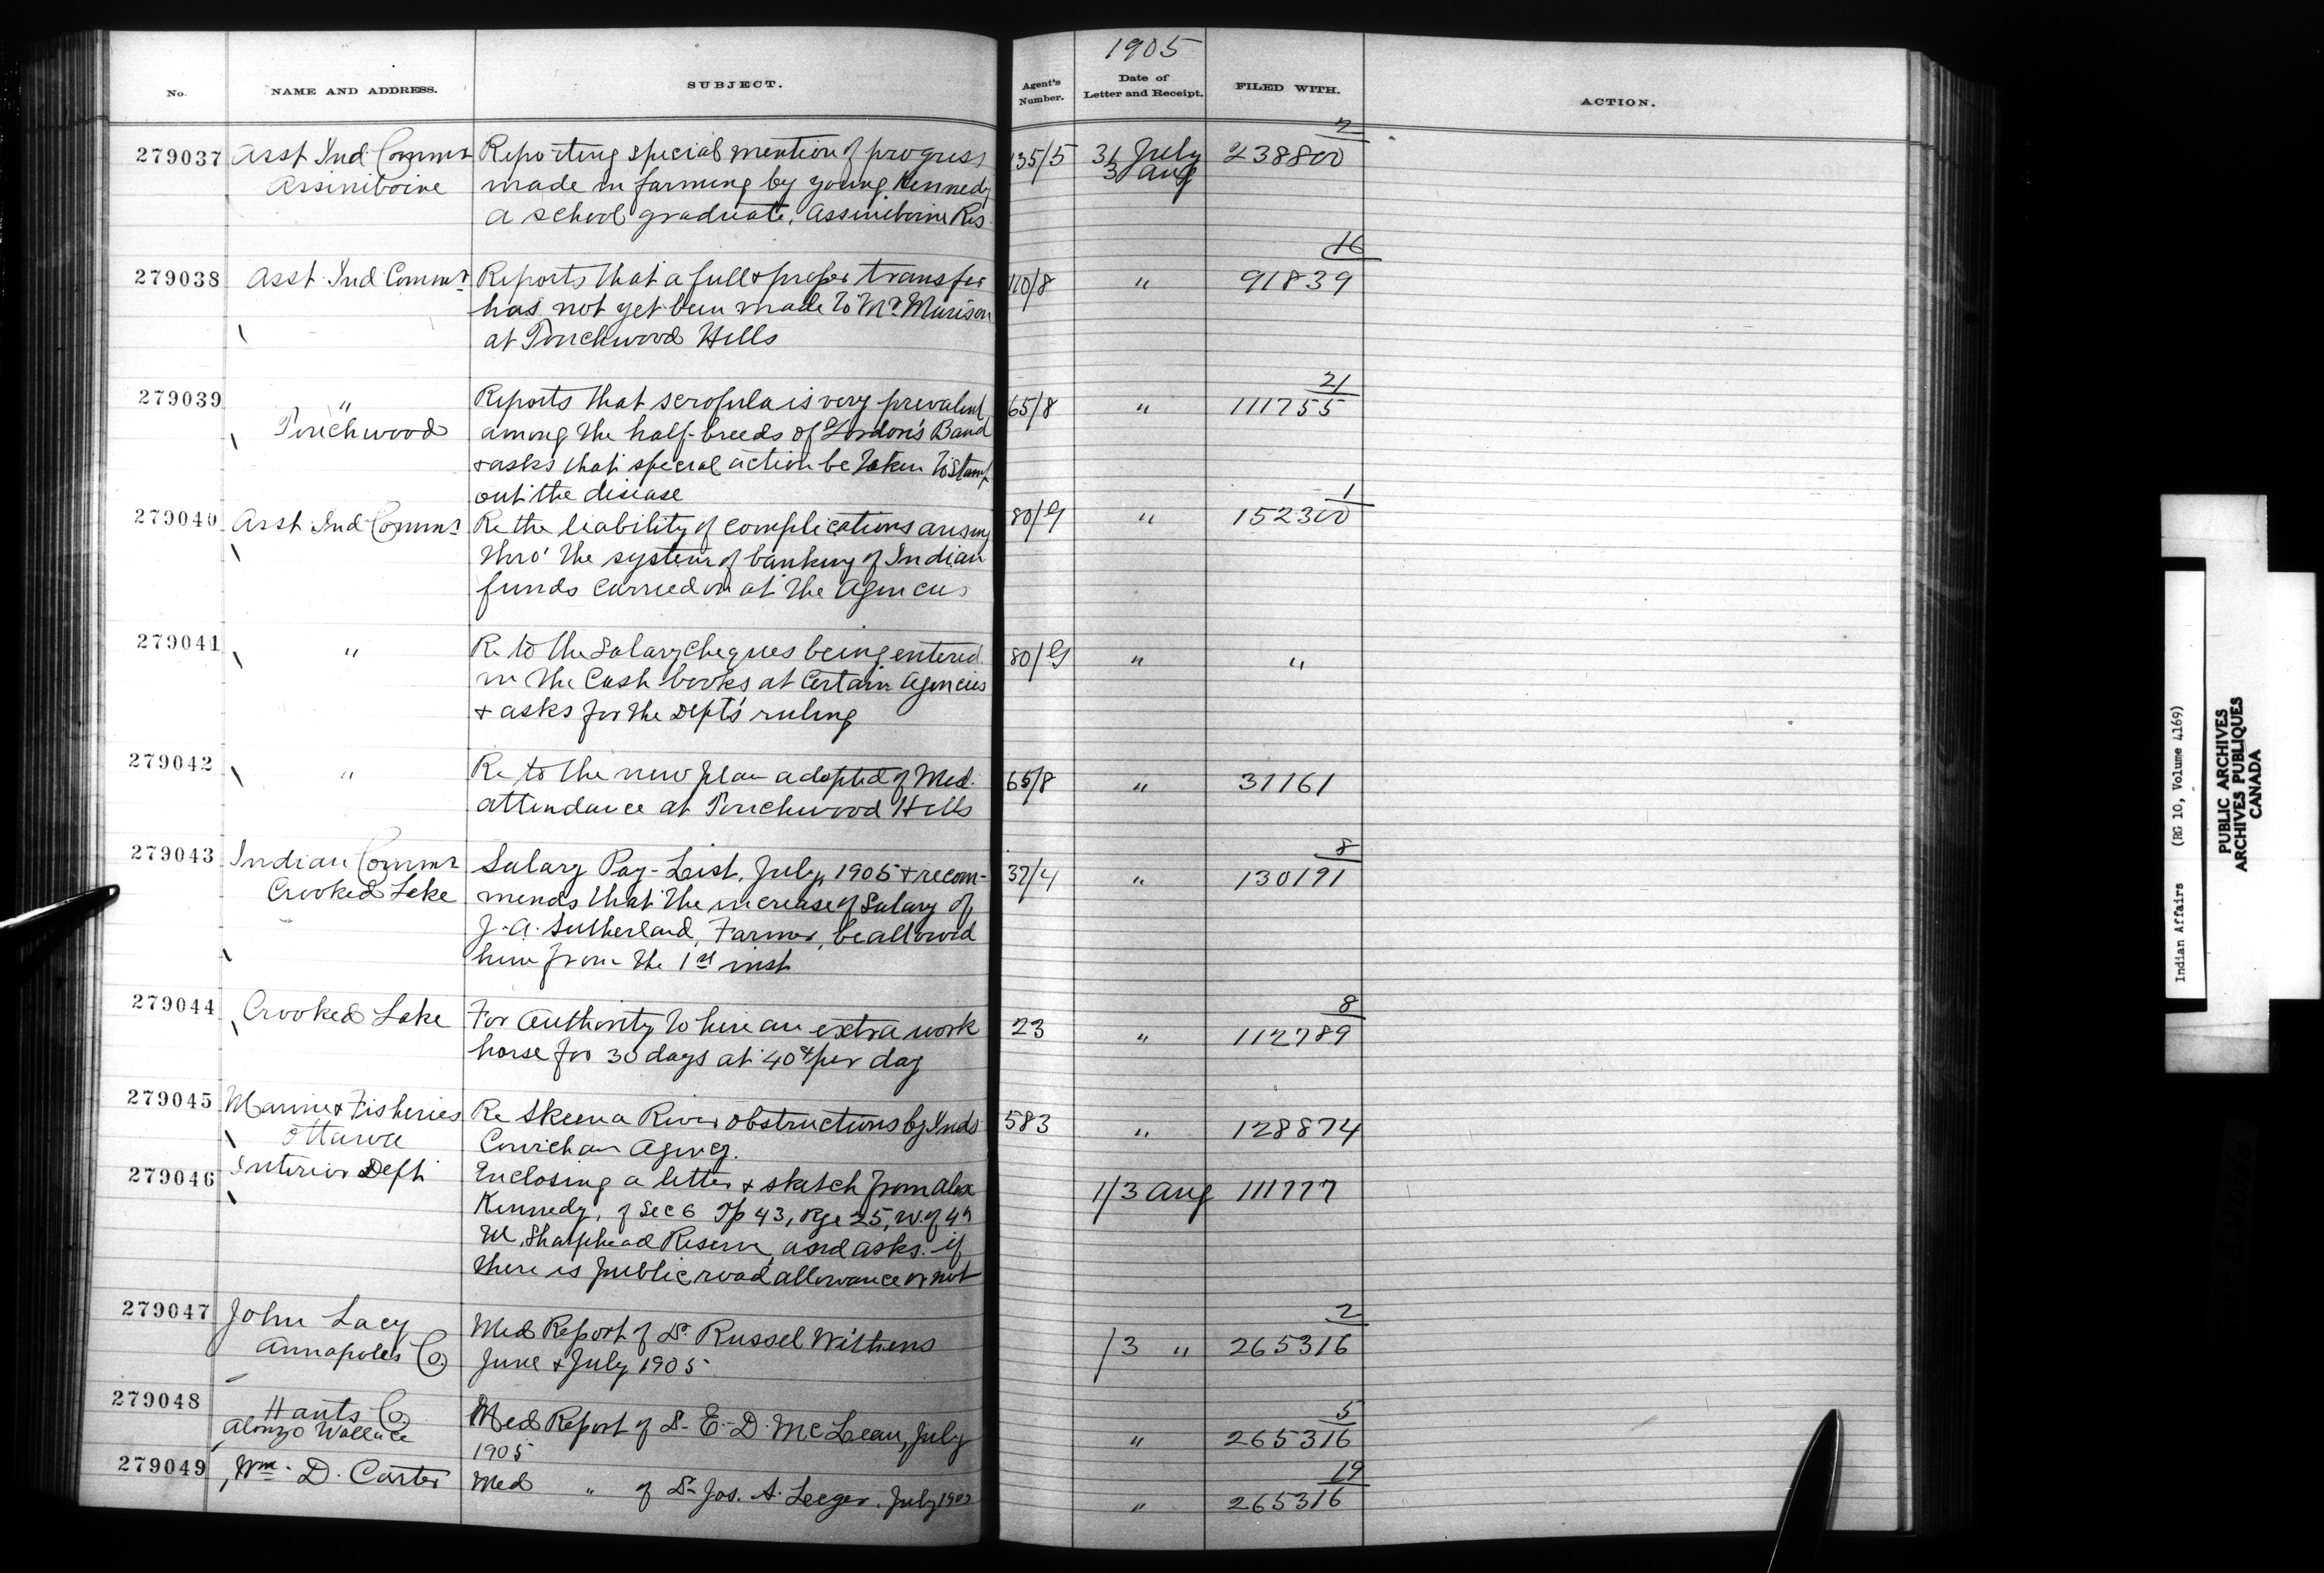 1905
No. NAME AND ADDRESS. SUBJECT. Agent's Number. Date of Letter and Receipt. FILED WITH. ACTION.
279037 Asst Ind Commr Reporting special mention of progress 135/5 31 July 238800 2
Assiniboine made in farming by young Kennedy 3 Aug
a school graduate, Assiniboine Res
279038 Asst Ind Commr Reports that a full & proper transfer 110/8 " 91839 16
has not yet been made to Mr Murison
at Touchwood Hills
279039 " Reports that scrofula is very prevalent 65/8 " 111755 21
Touchwood among the half-breeds of Gordon's Band
& asks that special action be taken to stamp
out the disease
279040 Asst Ind Commr Re the liability of complications arising 80/G " 152300 1
thro' the system of banking of Indian
funds carried on at the Agencies
279041 " Re to the Salary Cheques being entered 80/G " "
in the Cash books at Certain Agencies
& asks for the Dept's ruling
279042 " Re to the new plan adopted of Med. 65/8 " 31161
attendance at Touchwood Hills
279043 Indian Commr Salary Pay-List, July, 1905 & recom- 37/4 " 130191 8
Crooked Lake mends that the increase of Salary of
J. A. Sutherland, Farmer, be allowed
him from the 1st inst
279044 Crooked Lake For Authority to hire an extra work 23 " 112789 8
horse for 30 days at 40¢ per day
279045 Marine & Fisheries Re Skeena River obstructions by Inds 583 " 128874
Ottawa Cowichan Agency.
279046 Interior Dept Enclosing a letter & sketch from Alex 1/3 Aug 111777
Kennedy, of Sec 6 Tp 43, Rge 25, W. of 4th
M, Sharphead Reserve, and asks if
there is public road allowance or not
279047 John Lacy Med Report of Dr. Russel Withens 1/3 " 265316 2
Annapoles Co. June & July 1905
279048 Hants Co. Med Report of Dr E. D. McLean, July " 265316 5
Alonzo Wallace 1905
279049 Wm. D. Carter Med " of Dr Jos. A. Leeger. July " 265316 19
Indian Affairs (RG 10, Volume 4169)
PUBLIC ARCHIVES
ARCHIVES PUBLIQUES
CANADA